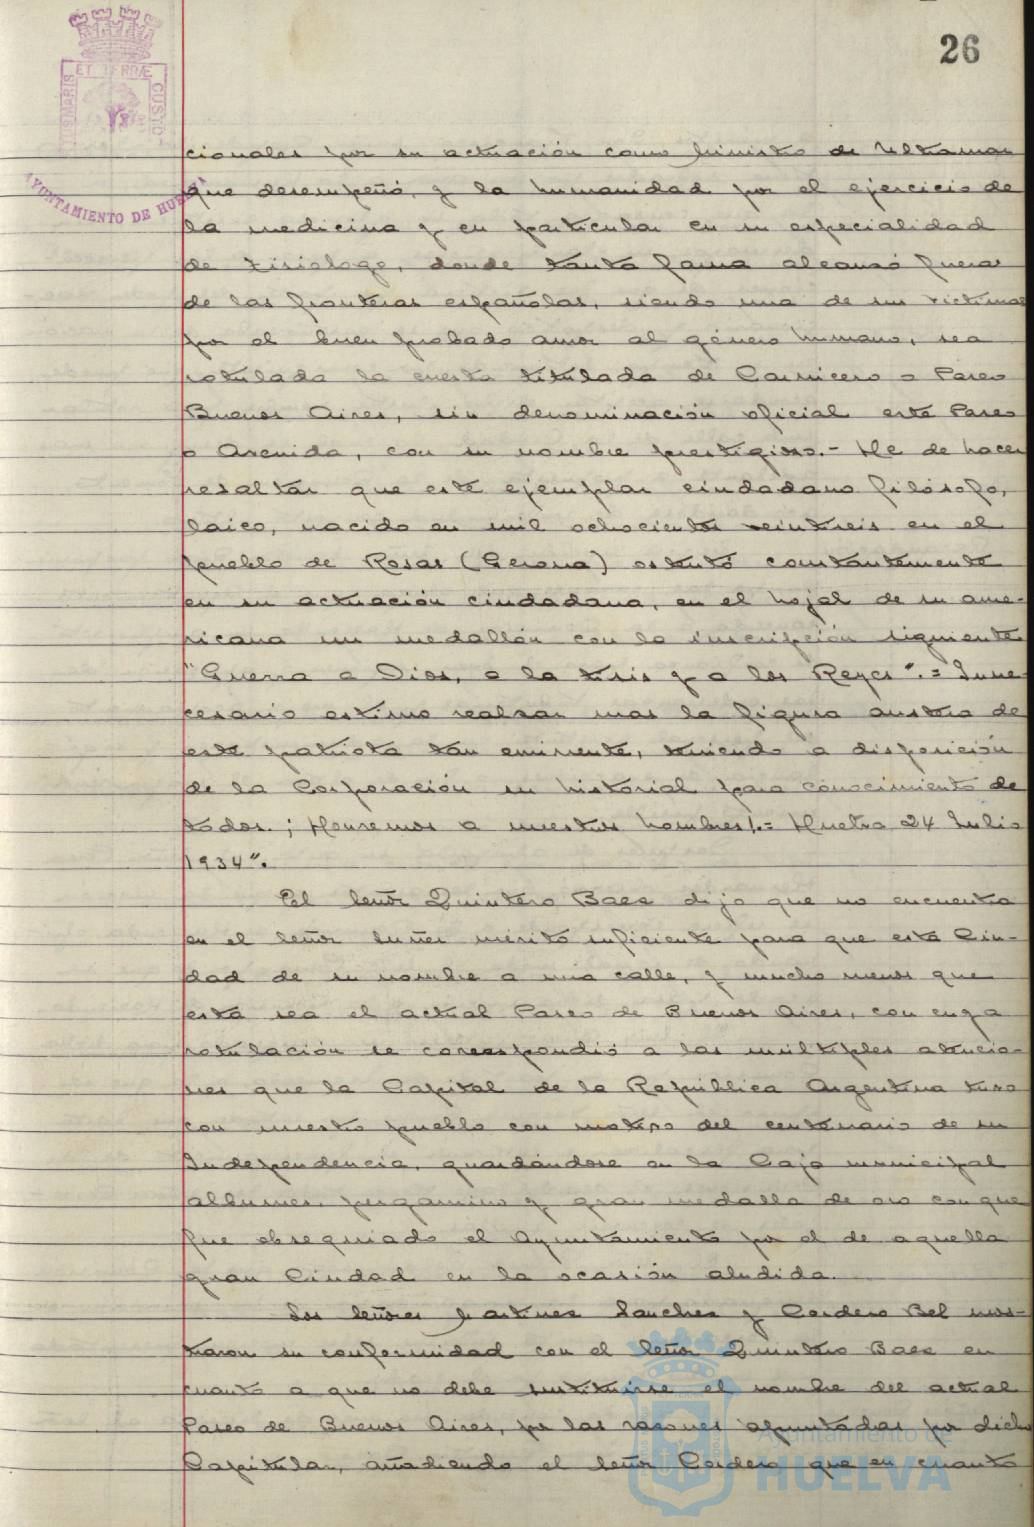 26
ET TERRÆ
MARIS
CUSTO
AYUNTAMIENTO DE HUELVA
cionales por su actuación como Ministro de Ultramar
que desempeñó, y la humanidad por el ejercicio de
la medicina y en particular en su especialidad
de tisiologo, donde tanta fama alcanzó fueras
de las fronteras españolas, siendo una de sus victimas
por el buen probado amor al género humano, sea
rotulada la cuesta titulada de Carnicero o Paseo
Buenos Aires, sin denominación oficial este Paseo
o Avenida, con su nombre prestigioso.- He de hacer
resaltar que este ejemplar ciudadano filósofo,
laico, nacido en mil ochocientos veintiseis en el
pueblo de Rosas (Gerona) ostentó constantemente
en su actuación ciudadana, en el hojal de su ame-
ricana un medallón con la inscripción siguiente
"Guerra a Dios, a la tisis y a los Reyes".= Inne-
cesario estimo realzar mas la figura austera de
este patriota tan eminente, teniendo a disposición
de la Corporación su historial para conocimiento de
todos. ¡Honremos a nuestros hombres!.= Huelva 24 Julio
1934".
El Señor Quintero Baez dijo que no encuentra
en el Señor Suñer mérito suficiente para que esta Ciu-
dad de su nombre a una calle, y mucho menos que
esta sea el actual Paseo de Buenos Aires, con cuya
rotulación se correspondió a las múltiples atencio-
nes que la Capital de la República Argentina tuvo
con nuestro pueblo con motivo del centenario de su
Independencia, guardándose en la Caja municipal
albumes, pergamino y gran medalla de oro con que
fue obsequiado el Ayuntamiento por el de aquella
gran Ciudad en la ocasión aludida.
Los Señores Martinez Sanchez y Cordero Bel mos-
traron su conformidad con el Señor Quintero Baez en
cuanto a que no debe sustituirse el nombre del actual
Paseo de Buenos Aires, por las razones apuntadas por dicho
Capitular, añadiendo el Señor Cordero que en cuanto
Ayuntamiento de
HUELVA